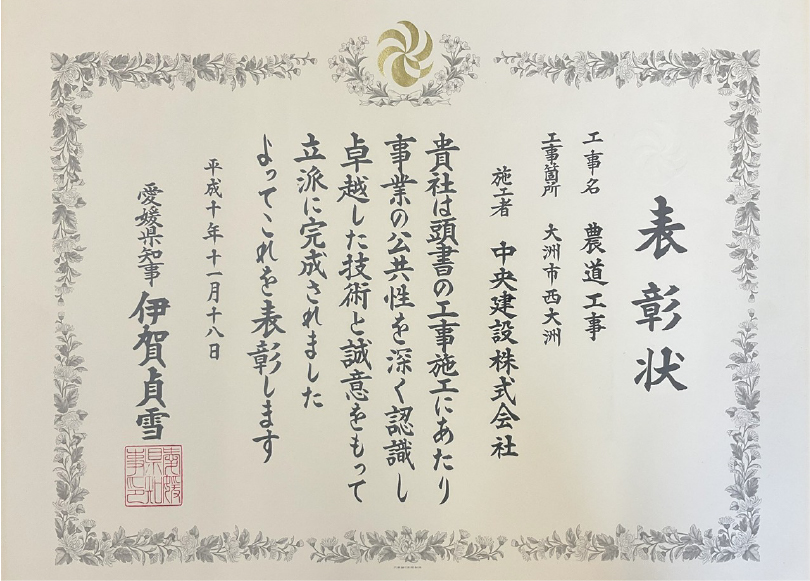 表彰状
工事名 農道工事
工事箇所 大洲市西大洲
施工者 中央建設株式会社
貴社は頭書の工事施工にあたり
事業の公共性を深く認識し
卓越した技術と誠意をもって
立派に完成されました
よってこれを表彰します
平成十年十一月十八日
愛媛県知事 伊賀貞雪
愛媛県知事印